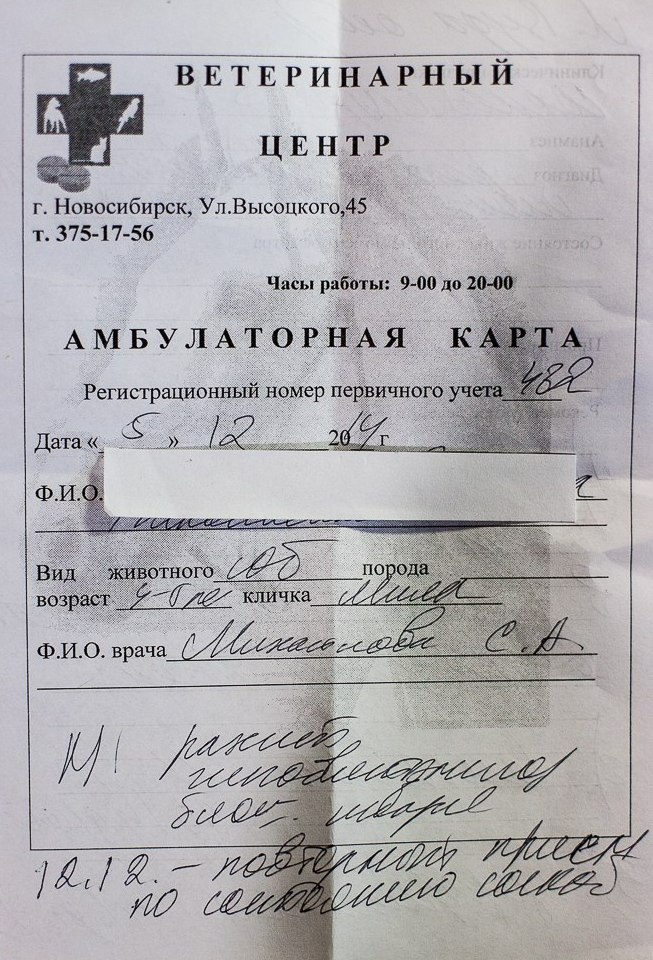 ВЕТЕРИНАРНЫЙ
ЦЕНТР
г. Новосибирск, Ул.Высоцкого,45
т. 375-17-56
Часы работы: 9-00 до 20-00
АМБУЛАТОРНАЯ КАРТА
Регистрационный номер первичного учета 482
Дата « 5 » 12 2014 г
Ф.И.О.
Вид животного соб порода
возраст кличка Мила
Ф.И.О. врача Михайлова С.А
12.12. - повторный прием
по состоянию собаки